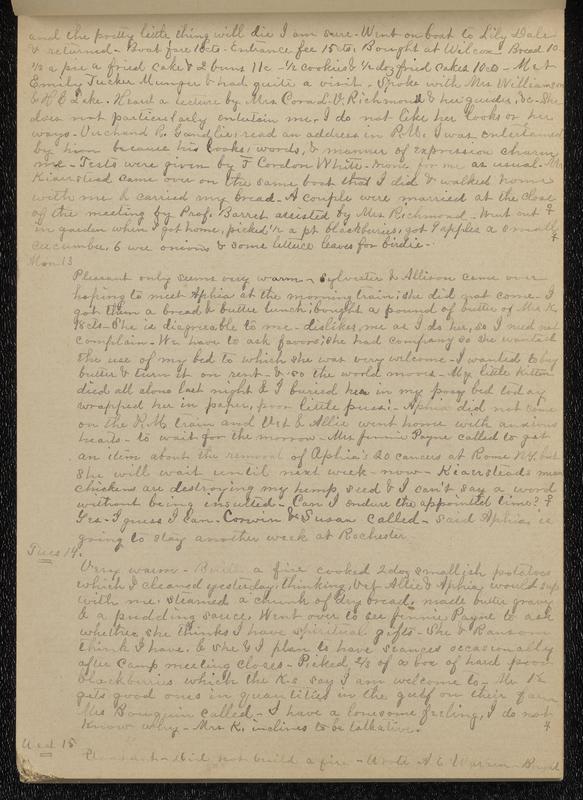 and the pretty little thing will die I am sure - Went on boat to Lily Dale
& returned - Boat fare 10cts - Entrance fee 15cts, Bought at Wilcox Bread 10
1/2 a pie a fried cake & 2 buns 11c - 1/2 cookies & 1/2 doz fried cakes 10cts - Met
Emily Tucker Munger & had quite a visit - Spoke with Mrs Williamson
& H. C. Lake. Heard a lecture by Mrs Cora L. V. Richmond & her guides, &c - She
does not particularly entertain me. I do not like her looks or her
ways - read an address in P.M. I was entertained
by him because his looks, words, & manner of expression charm
me - Tests were given by F Cordon White - none for me as usual - Mrs
Kiaerstead came over on the same boat that I did & walked home
with me & carried my bread. A couple were married at the close
of the meeting by Prof. Barret assisted by Mrs Richmond - Went out
in garden when I got home, picked 1/2 a pt blackberries, got 9 apples a small
cucumber, 6 wee onions & some lettuce leaves for birdie -
Mon 13
Pleasant only seems very warm - Sylvester & Allison came over
hoping to meet Aphia at the morning train; she did not come - I
got them a bread & butter lunch; bought a pound of butter of Mrs K.
18cts - She is disagreeable to me - dislikes me as I do her, so I need not
complain - We have to ask favors; she had company so she wanted
the use of my bed to which she was very welcome - I wanted to buy
butter & turn it on rent - & so the world moves - My little kitten
died all alone last night & I buried her in my posy bed today
wrapped her in paper, poor little puss! - Aphia did not come
on the P.M. train and Vet & Allie went home with anxious
hearts - to wait for the morrow - Mrs Jennie Payne called to get
an item about the removal of Aphia's 20 cancers at Rome N.Y. but
she will wait until next week - now - Kiaersteads mean
chickens are destroying my hemp seed & I can't say a word
without being insulted - Can I endure the appointed time?
Yes - I guess I can. Corwin & Susan called - said Aphia is
going to stay another week at Rochester
Tues 14.
Very warm - Build a fire cooked 2 doz smallish potatoes
which I cleaned yesterday thinking Vet Allie & Aphia would sup
with me. steamed a chunk of dry bread, made butter gravy
& a pudding sauce. Went over to see Jennie Payne to ask
whether she thinks I have spiritual gifts - She & Ransom
think I have. & she & I plan to have seances occasionally
after Camp meeting closes - Picked 2/3 of a box of hard poor
blackberries which the K-s say I am welcome to - Mr K
gets good ones in quantities in the gulf on their farm
Mrs Bouquin called - I have a lonesome feeling, I do not
know why - Mrs K. inclines to be talkative.
Wed 15
Pleasant - did not build a fire - Wrote A. C. Warren -